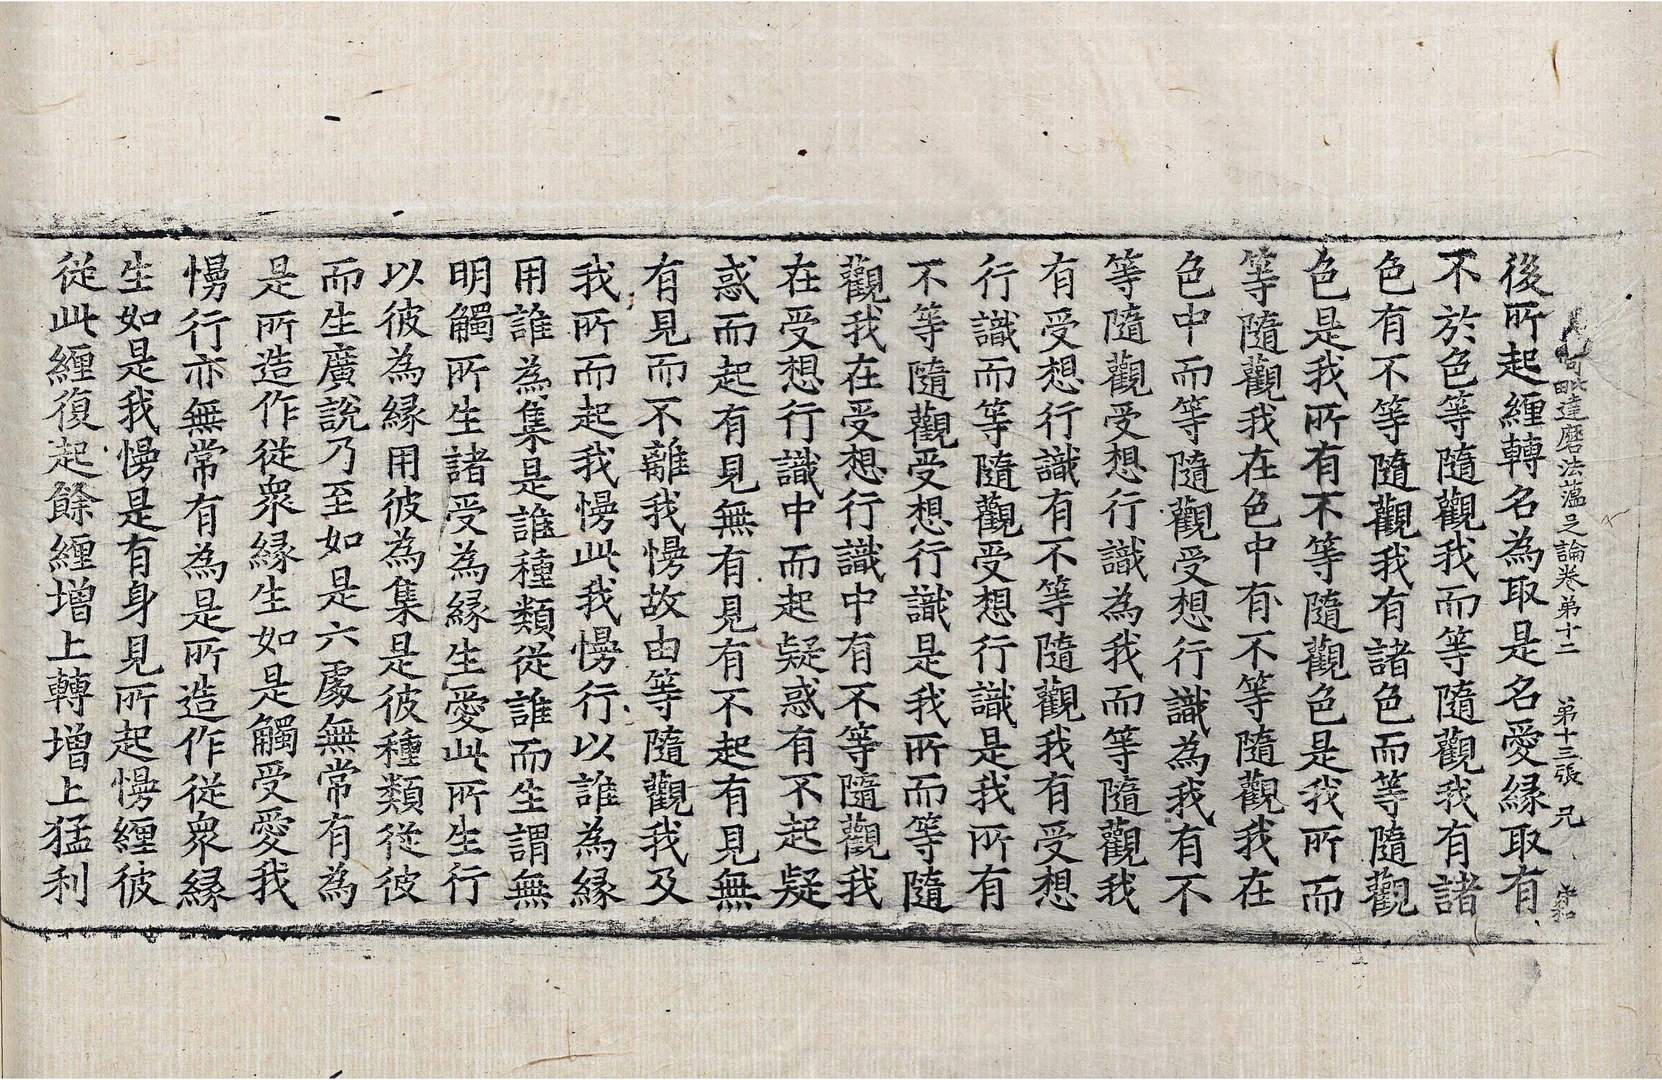 毗達磨法蕰足論卷第十二 第十三張 兄
後所起纏轉名為取是名愛緣取有
不於色等隨觀我而等隨觀我有諸
色有不等隨觀我有諸色而等隨觀
色是我所有不等隨觀色是我所而
等隨觀我在色中有不等隨觀我在
色中而等隨觀受想行識為我有不
等隨觀受想行識為我而等隨觀我
有受想行識有不等隨觀我有受想
行識而等隨觀受想行識是我所有
不等隨觀受想行識是我所而等隨
觀我在受想行識中有不等隨觀我
在受想行識中而起疑惑有不起疑
惑而起有見無有見有不起有見無
有見而不離我慢故由等隨觀我及
我所而起我慢此我慢行以誰為緣
用誰為集是誰種類從誰而生謂無
明觸所生諸受為緣生愛此所生行
以彼為緣用彼為集是彼種類從彼
而生廣說乃至如是六處無常有為
是所造作從眾緣生如是觸受愛我
慢行亦無常有為是所造作從眾緣
生如是我慢是有身見所起慢纏彼
從此纏復起餘纏增上轉增上猛利